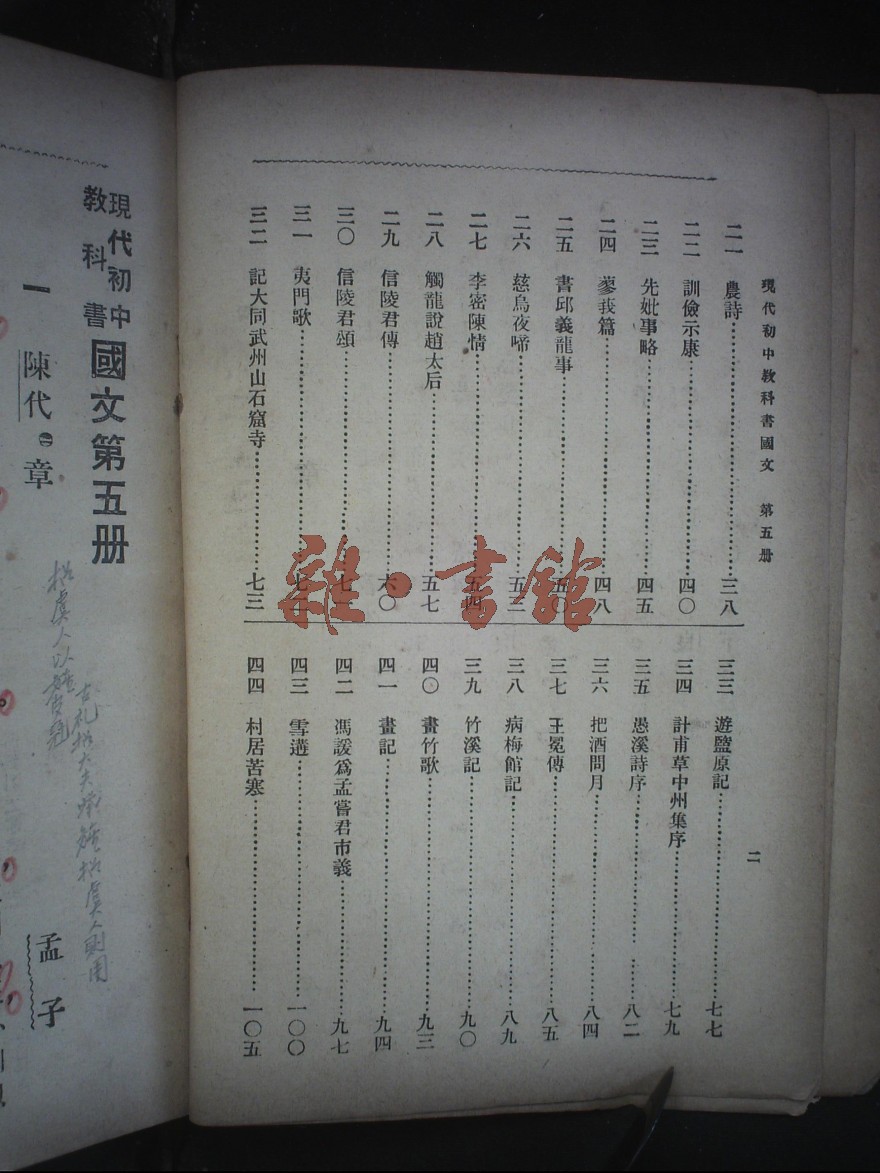 現代初中教科書國文 第五册
二一 農詩……三八
二二 訓儉示康……四〇
二三 先妣事略……四五
二四 蓼莪篇……四八
二五 書邱義龍事……五〇
二六 慈烏夜啼……五三
二七 李密陳情……五四
二八 觸龍說趙太后……五七
二九 信陵君傳……六〇
三〇 信陵君頌……七
三一 夷門歌……七
三二 記大同武州山石窟寺……七三
三三 遊鹽原記……七七
三四 計甫草中州集序……七九
三五 愚溪詩序……八二
三六 把酒問月……八四
三七 王冕傳……八五
三八 病梅館記……八九
三九 竹溪記……九〇
四〇 畫竹歌……九三
四一 畫記……九四
四二 馮諼爲孟嘗君市義……九七
四三 雪遘……一〇〇
四四 村居苦寒……一〇五
二
雜·書館
現代初中
教科書
國文第五册
一 陳代章
孟子
招虞人以